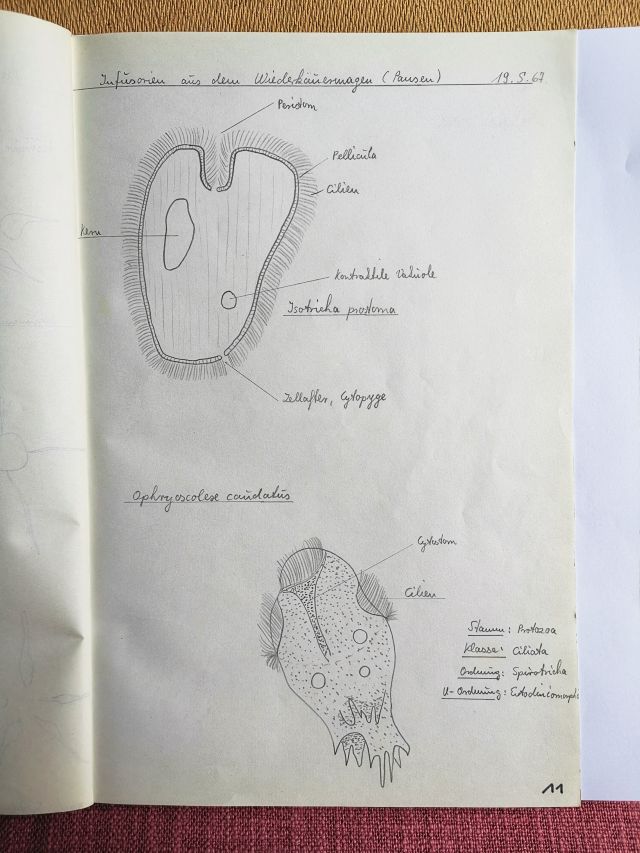 Infusorien aus dem Wiederkäuermagen (Pansen) 19.5.67
Peristom
Pellicula
Cilien
Kern
Kontraktile Vakuole
Isotricha prostoma
Zellafter, Cytopyge
Ophryoscolex caudatus
Cytostom
Cilien
Stamm: Protozoa
Klasse: Ciliata
Ordnung: Spirotricha
U-Ordnung:
11